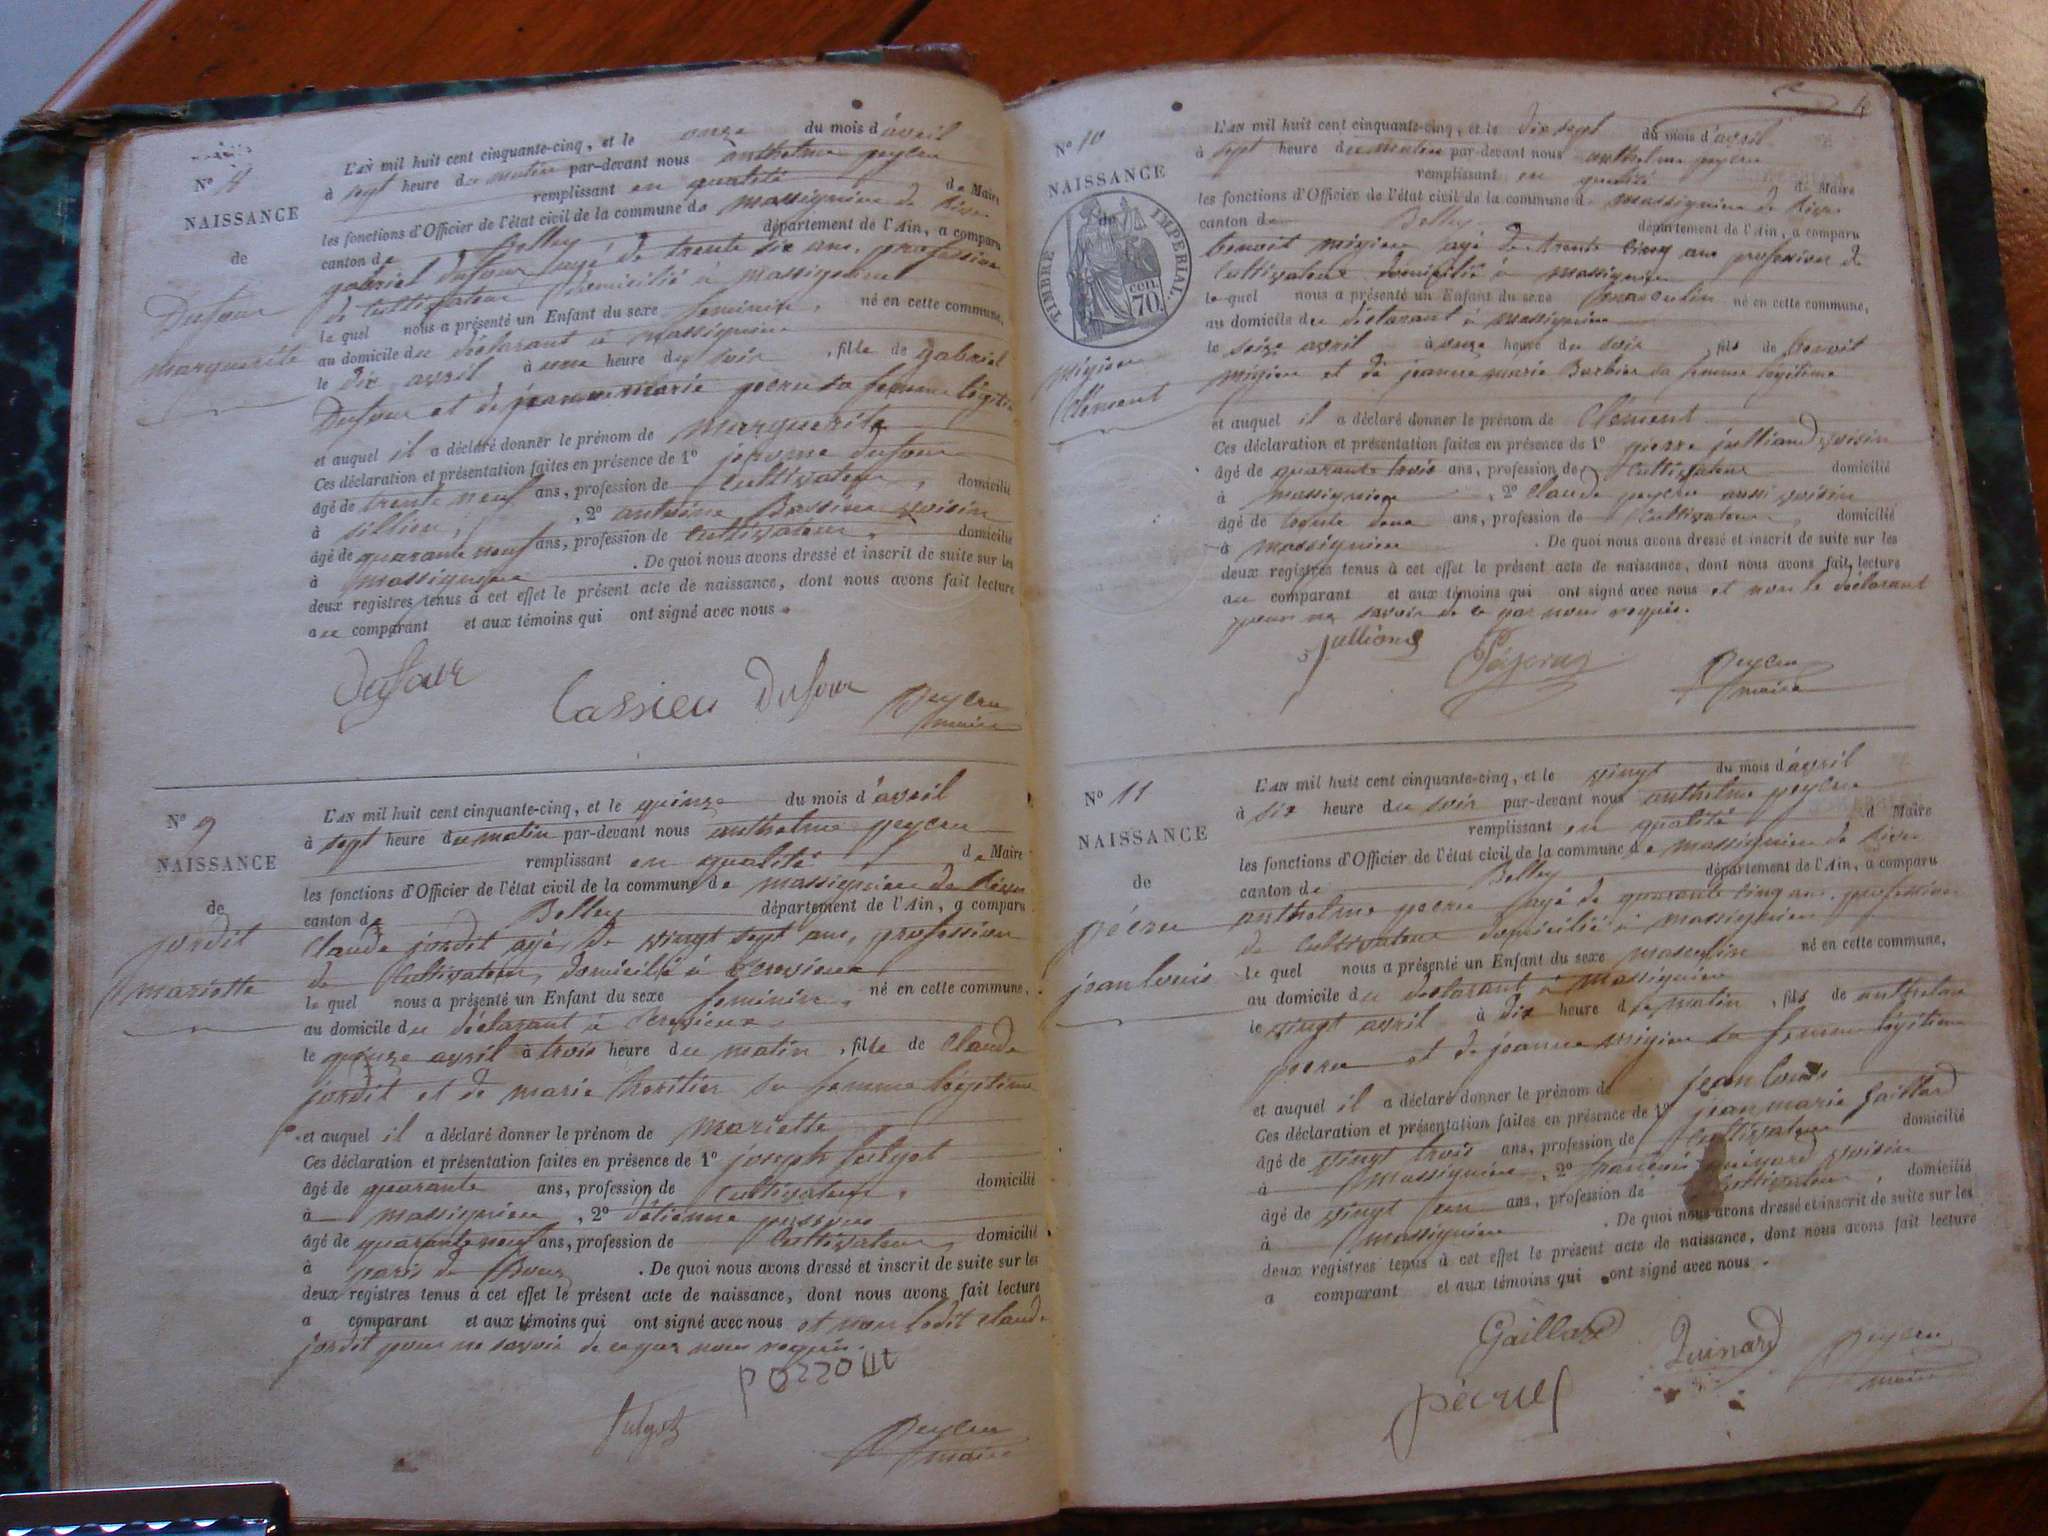 N° 8
NAISSANCE
de
Dufour
marguerite
L'AN mil huit cent cinquante-cinq, et le onze du mois d'avril
à sept heure du matin par-devant nous anthelme peycru
remplissant en qualité de Maire
les fonctions d'Officier de l'état civil de la commune de massignieu de Rives
canton de Belley département de l'Ain, a comparu
gabriel dufour, agé de trente six ans, profession
de Cultivateur, domicilié à massignieu
le quel nous a présenté un Enfant du sexe feminin, né en cette commune,
au domicile du déclarant à massignieu
le dix avril à une heure du soir, fille de gabriel
Dufour et de jeanne marie pecru sa femme légitime
et auquel il a déclaré donner le prénom de marguerite
Ces déclaration et présentation faites en présence de 1° jerome dufour
âgé de trente neuf ans, profession de Cultivateur, domicilié
à sillieu, , 2° antoine voisin
âgé de quarante neuf ans, profession de Cultivateur, domicilié
à massignieu . De quoi nous avons dressé et inscrit de suite sur les
deux registres tenus à cet effet le présent acte de naissance, dont nous avons fait lecture
au comparant et aux témoins qui ont signé avec nous.
Dufour
Cassieu Dufour Peycru
maire
N° 9
NAISSANCE
de
jordit
mariette
L'AN mil huit cent cinquante-cinq, et le quinze du mois d'avril
à sept heure du matin par-devant nous anthelme peycru
remplissant en qualité de Maire
les fonctions d'Officier de l'état civil de la commune de massignieu de Rives
canton de Belley département de l'Ain, a comparu
Claude jordit agé de vingt sept ans, profession
de Cultivateur, domicilié à
le quel nous a présenté un Enfant du sexe feminin, né en cette commune,
au domicile du déclarant à
le quinze avril à trois heure du matin, fille de Claude
jordit et de marie heritier sa femme légitime
et auquel il a déclaré donner le prénom de mariette
Ces déclaration et présentation faites en présence de 1° joseph
âgé de quarante ans, profession de Cultivateur, domicilié
à massignieu , 2° étienne
âgé de quarante neuf ans, profession de Cultivateur, domicilié
à . De quoi nous avons dressé et inscrit de suite sur les
deux registres tenus à cet effet le présent acte de naissance, dont nous avons fait lecture
a comparant et aux témoins qui ont signé avec nous et non ledit Claude
jordit pour ne savoir de ce par nous requis.
Peycru
maire
N° 10
NAISSANCE
de
TIMBRE IMPERIAL.
cen.
70
migieu
Clément
4
L'AN mil huit cent cinquante-cinq, et le dix sept du mois d'avril
à sept heure du matin par-devant nous anthelme peycru
remplissant en qualité de Maire
les fonctions d'Officier de l'état civil de la commune de massignieu de Rives
canton de Belley département de l'Ain, a comparu
benoit migieu agé de trente cinq ans profession de
Cultivateur domicilié à massignieu
le quel nous a présenté un Enfant du sexe masculin né en cette commune,
au domicile du déclarant à massignieu
le seize avril à onze heure du soir fils de benoit
migieu et de jeanne marie Barbier sa femme légitime
et auquel il a déclaré donner le prénom de Clément
Ces déclaration et présentation faites en présence de 1° pierre julliand voisin
âgé de quarante trois ans, profession de Cultivateur domicilié
à massignieu , 2° Claude peycru aussi voisin
âgé de trente deux ans, profession de Cultivateur, domicilié
à massignieu . De quoi nous avons dressé et inscrit de suite sur les
deux registres tenus à cet effet le présent acte de naissance, dont nous avons fait lecture
au comparant et aux témoins qui ont signé avec nous et non le déclarant
pour ne savoir de ce par nous requis.
julliand Peycru
maire
N° 11
NAISSANCE
de
pécru
jean louis
L'AN mil huit cent cinquante-cinq, et le vingt du mois d'avril
à six heure du soir par-devant nous anthelme peycru
remplissant en qualité d Maire
les fonctions d'Officier de l'état civil de la commune de massignieu de Rives
canton de Belley département de l'Ain, a comparu
anthelme pecru agé de quarante cinq ans, profession
de Cultivateur domicilié à massignieu
le quel nous a présenté un Enfant du sexe masculin né en cette commune,
au domicile du déclarant à massignieu
le vingt avril à dix heure du matin, fils de anthelme
pecru et de jeanne migieu sa femme légitime
et auquel il a déclaré donner le prénom de jean louis
Ces déclaration et présentation faites en présence de 1° jean marie gaillard
âgé de vingt trois ans, profession de Cultivateur domicilié
à massignieu , 2° françois quinard voisin
âgé de vingt un ans, profession de Cultivateur, domicilié
à massignieu . De quoi nous avons dressé et inscrit de suite sur les
deux registres tenus à cet effet le présent acte de naissance, dont nous avons fait lecture
a comparant et aux témoins qui ont signé avec nous.
Gaillard Quinard Peycru
maire
pécru